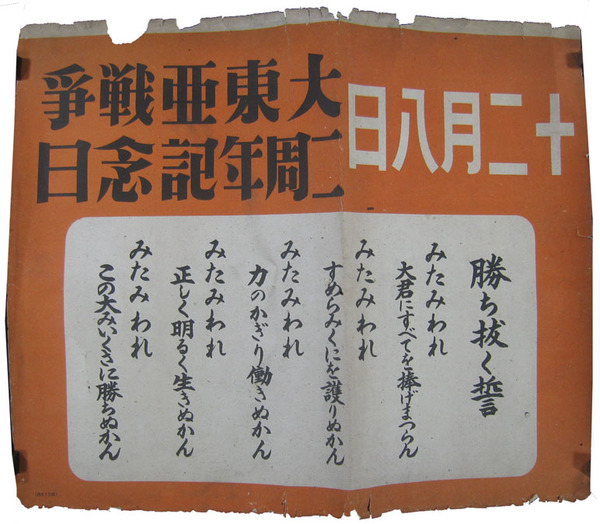 十二月八日
大東亜戦爭
二周年記念日
勝ち抜く誓
みたみわれ
大君にすべてを捧げまつらん
みたみわれ
すめらみくにを護りぬかん
みたみわれ
力のかぎり働きぬかん
みたみわれ
正しく明るく生きぬかん
みたみわれ
この大みいくさに勝ちぬかん